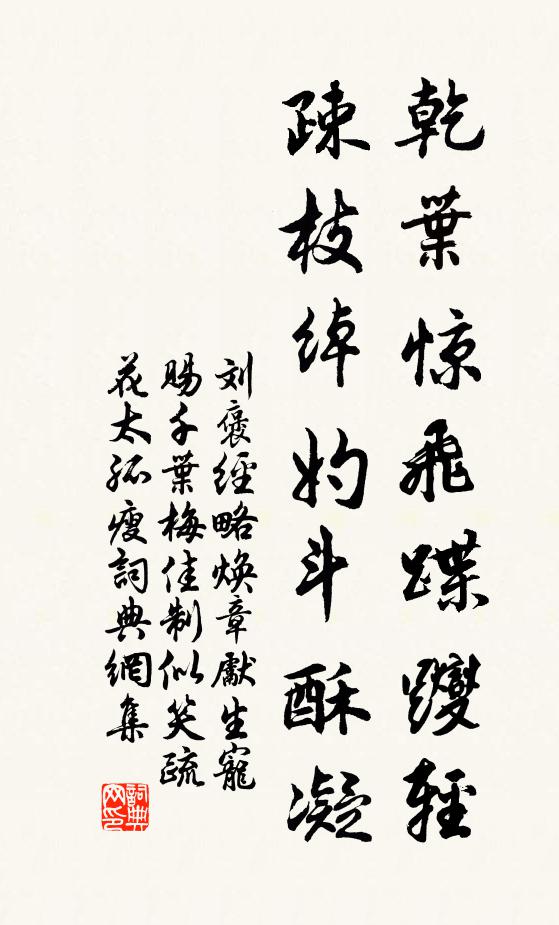 乾葉惊飛蹀躞輕
疎枝綽妁斗酥凝
刘褒經略焕章獻生寵
賜千葉梅佳制似笑疏
花太孤瘦詞典網集
詞典网印